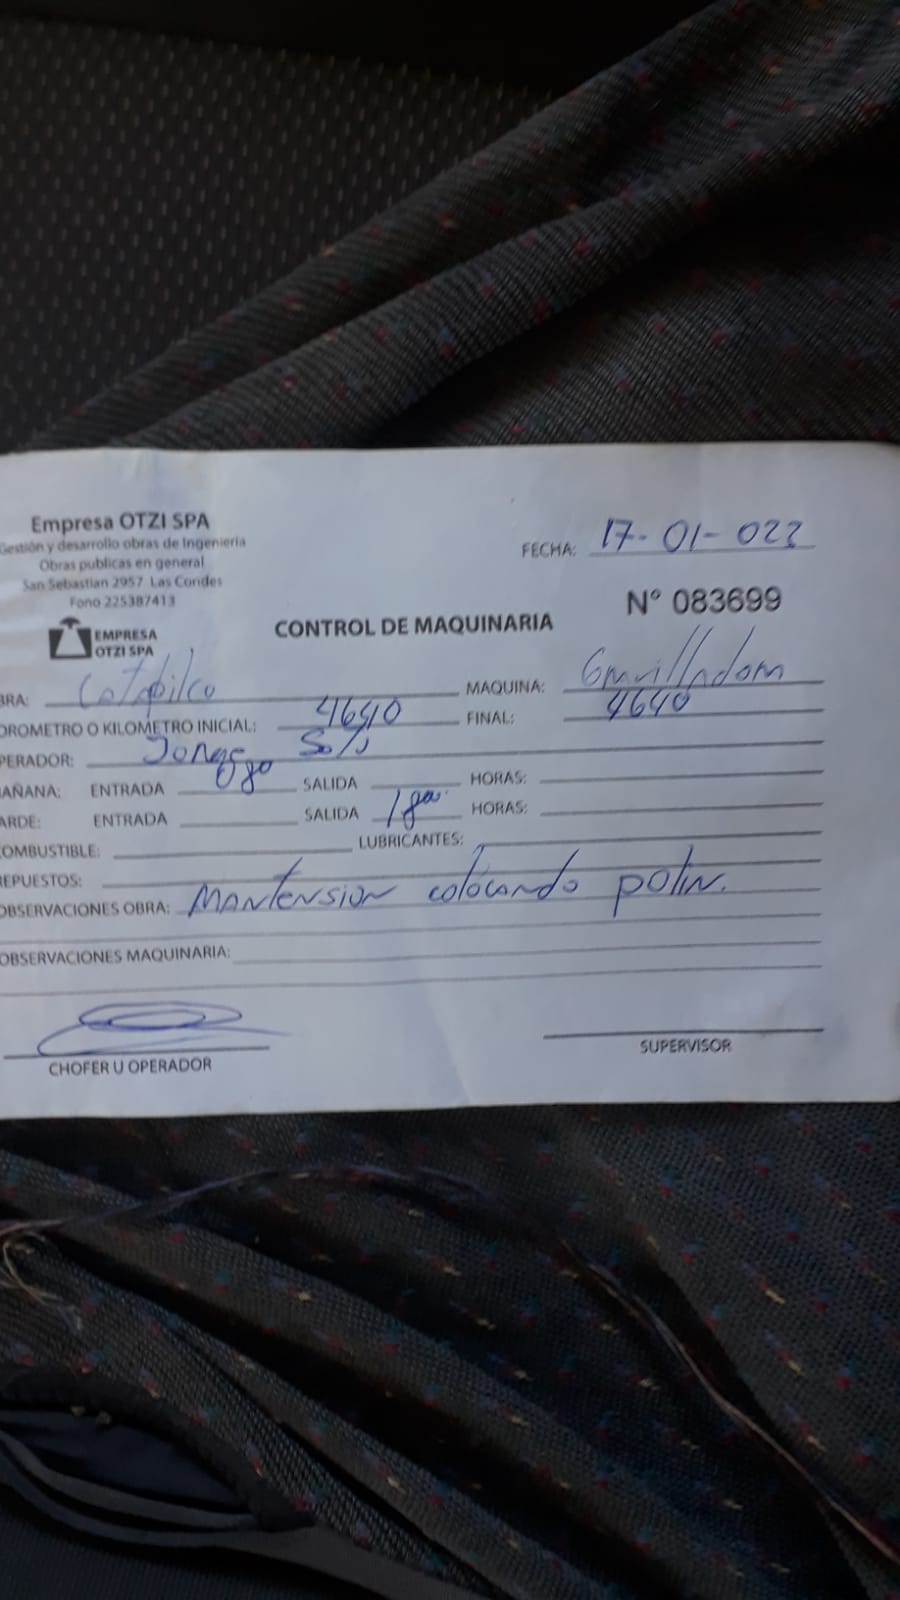 Empresa OTZI SPA
Gestión y desarrollo obras de Ingenieria
Obras publicas en general
San Sebastian 2957 Las Condes
Fono 225387413
EMPRESA
OTZI SPA
FECHA: 17-01-023
Nº 083699
CONTROL DE MAQUINARIA
BRA: Catapilco MAQUINA:
OROMETRO O KILOMETRO INICIAL: 4640 FINAL: 4640
PERADOR: Jorge
AÑANA: ENTRADA 080 SALIDA HORAS:
ARDE: ENTRADA SALIDA HORAS:
OMBUSTIBLE: LUBRICANTES:
REPUESTOS:
OBSERVACIONES OBRA: MANTENSION colocando polin.
OBSERVACIONES MAQUINARIA:
CHOFER U OPERADOR
SUPERVISOR